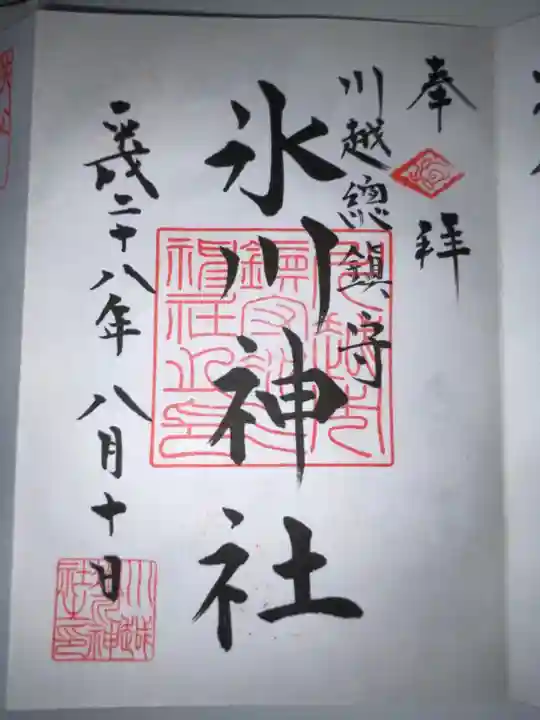 奉拝
川越總鎮守
氷川神社
平成二十八年八月十日